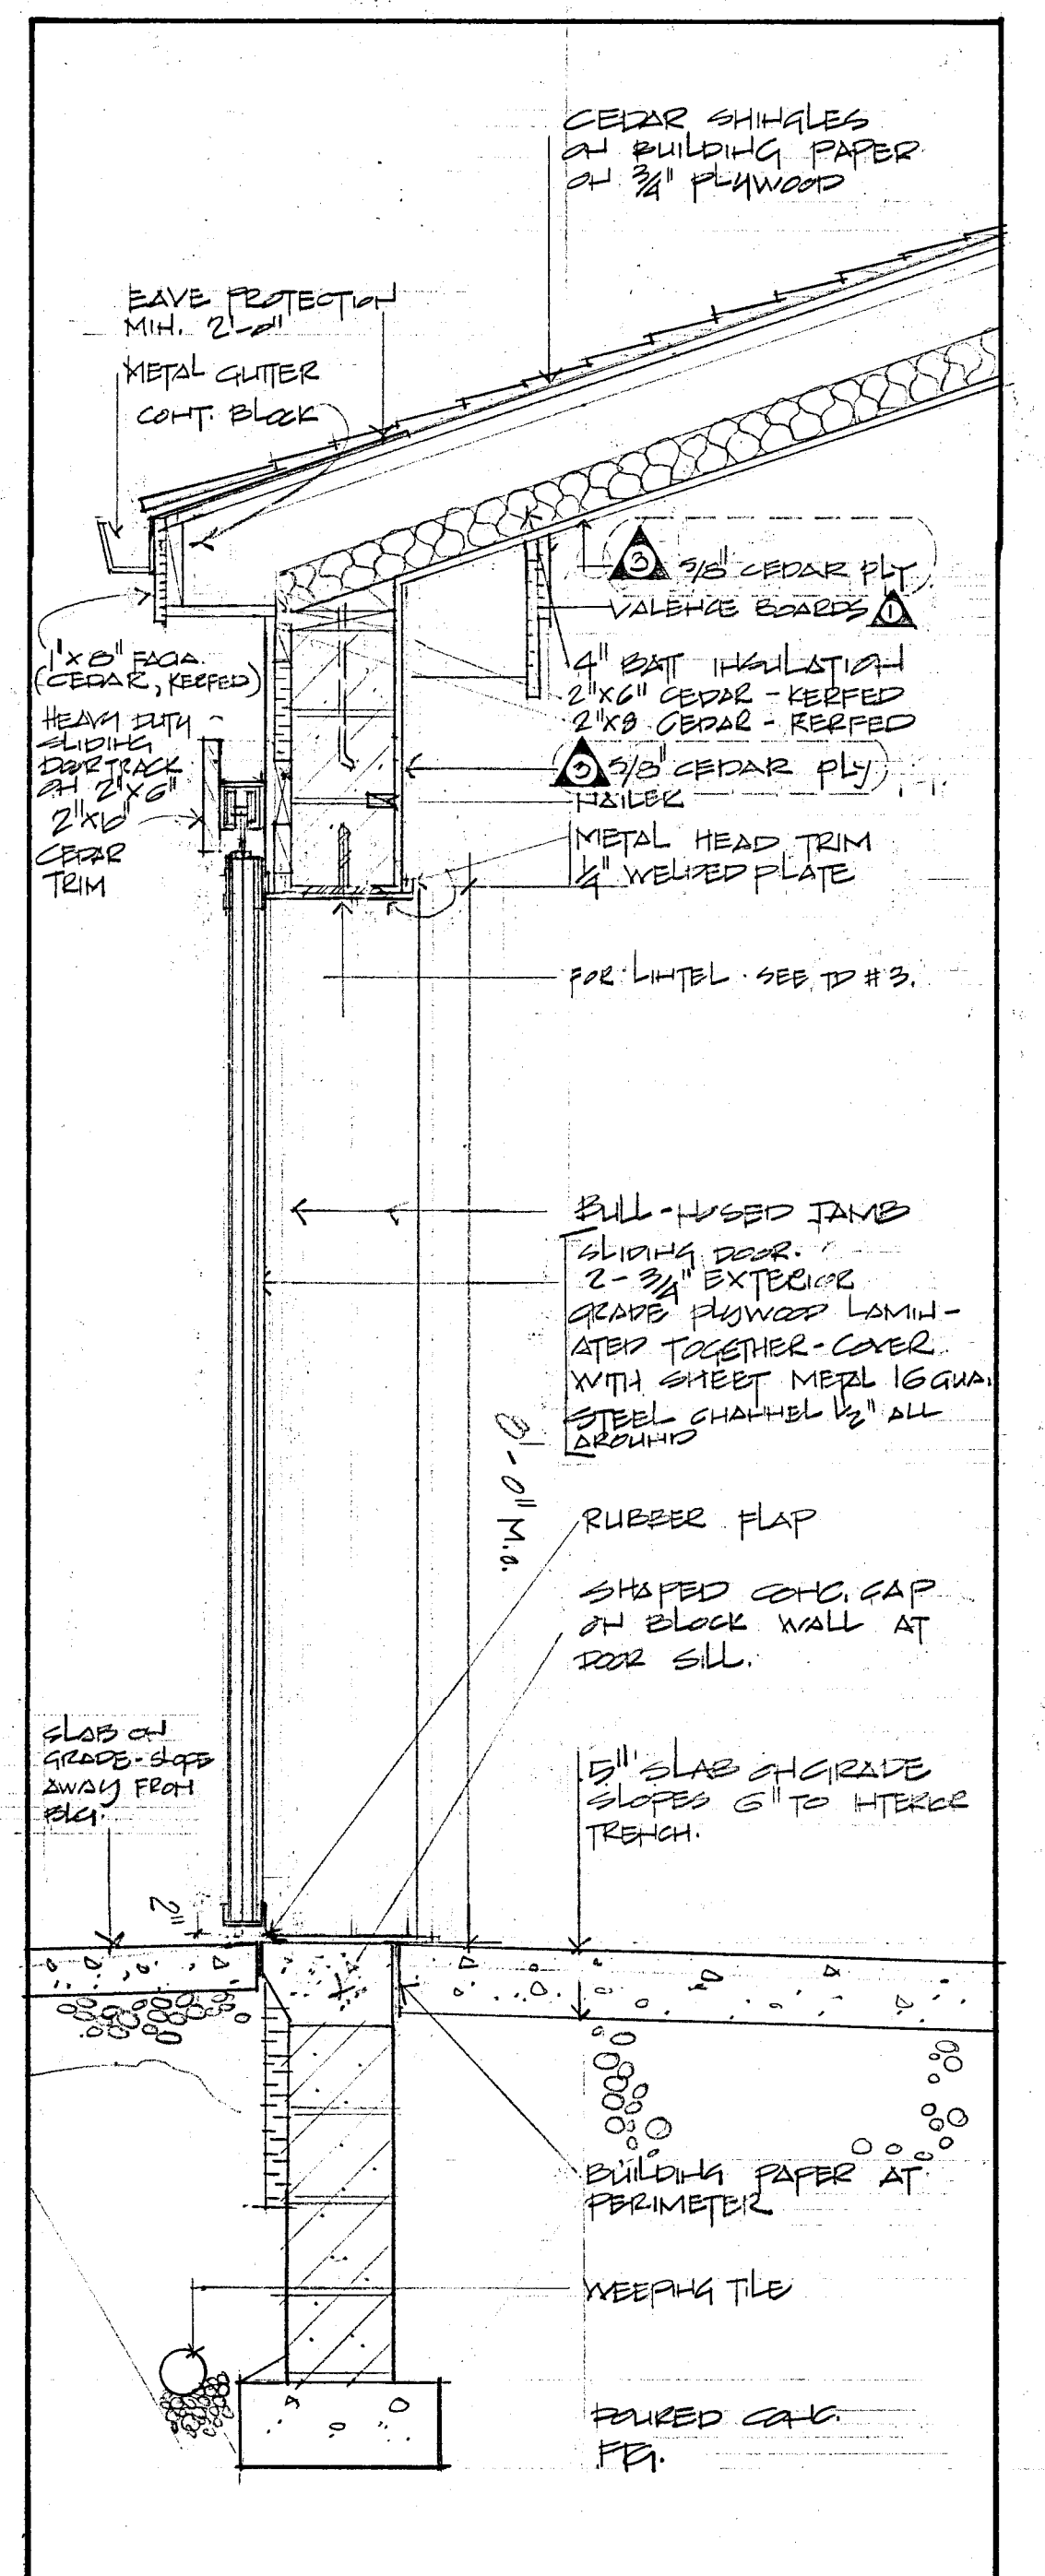 CEDAR SHINGLES
ON BUILDING PAPER
ON 3/4" PLYWOOD
EAVE PROTECTION
MIN. 2'-0"
METAL GUTTER
CONT. BLOCK
3 5/8" CEDAR PLY
VALENCE BOARDS 1
4" BATT INSULATION
2"X6" CEDAR - KERFED
2"X8 CEDAR - KERFED
3 5/8" CEDAR PLY
NAILER
METAL HEAD TRIM
1/4" WELDED PLATE
1"X8" FACIA.
(CEDAR, KERFED)
HEAVY DUTY
SLIDING
DOOR TRACK
ON 2"X6"
2"X6"
CEDAR
TRIM
FOR LINTEL SEE TD #3.
BULL-NOSED JAMB
SLIDING DOOR.
2 - 3/4" EXTERIOR
GRADE PLYWOOD LAMIN-
ATED TOGETHER - COVER
WITH SHEET METAL 16 GUA.
STEEL CHANNEL 1 1/2" ALL
AROUND
8'-0" M.O.
RUBBER FLAP
SHAPED CONC. CAP
ON BLOCK WALL AT
DOOR SILL.
SLAB ON
GRADE - SLOPE
AWAY FROM
BLG.
2"
5" SLAB ON GRADE
SLOPES 6" TO INTERIOR
TRENCH.
BUILDING PAPER AT
PERIMETER
WEEPING TILE
POURED CONC.
FTG.